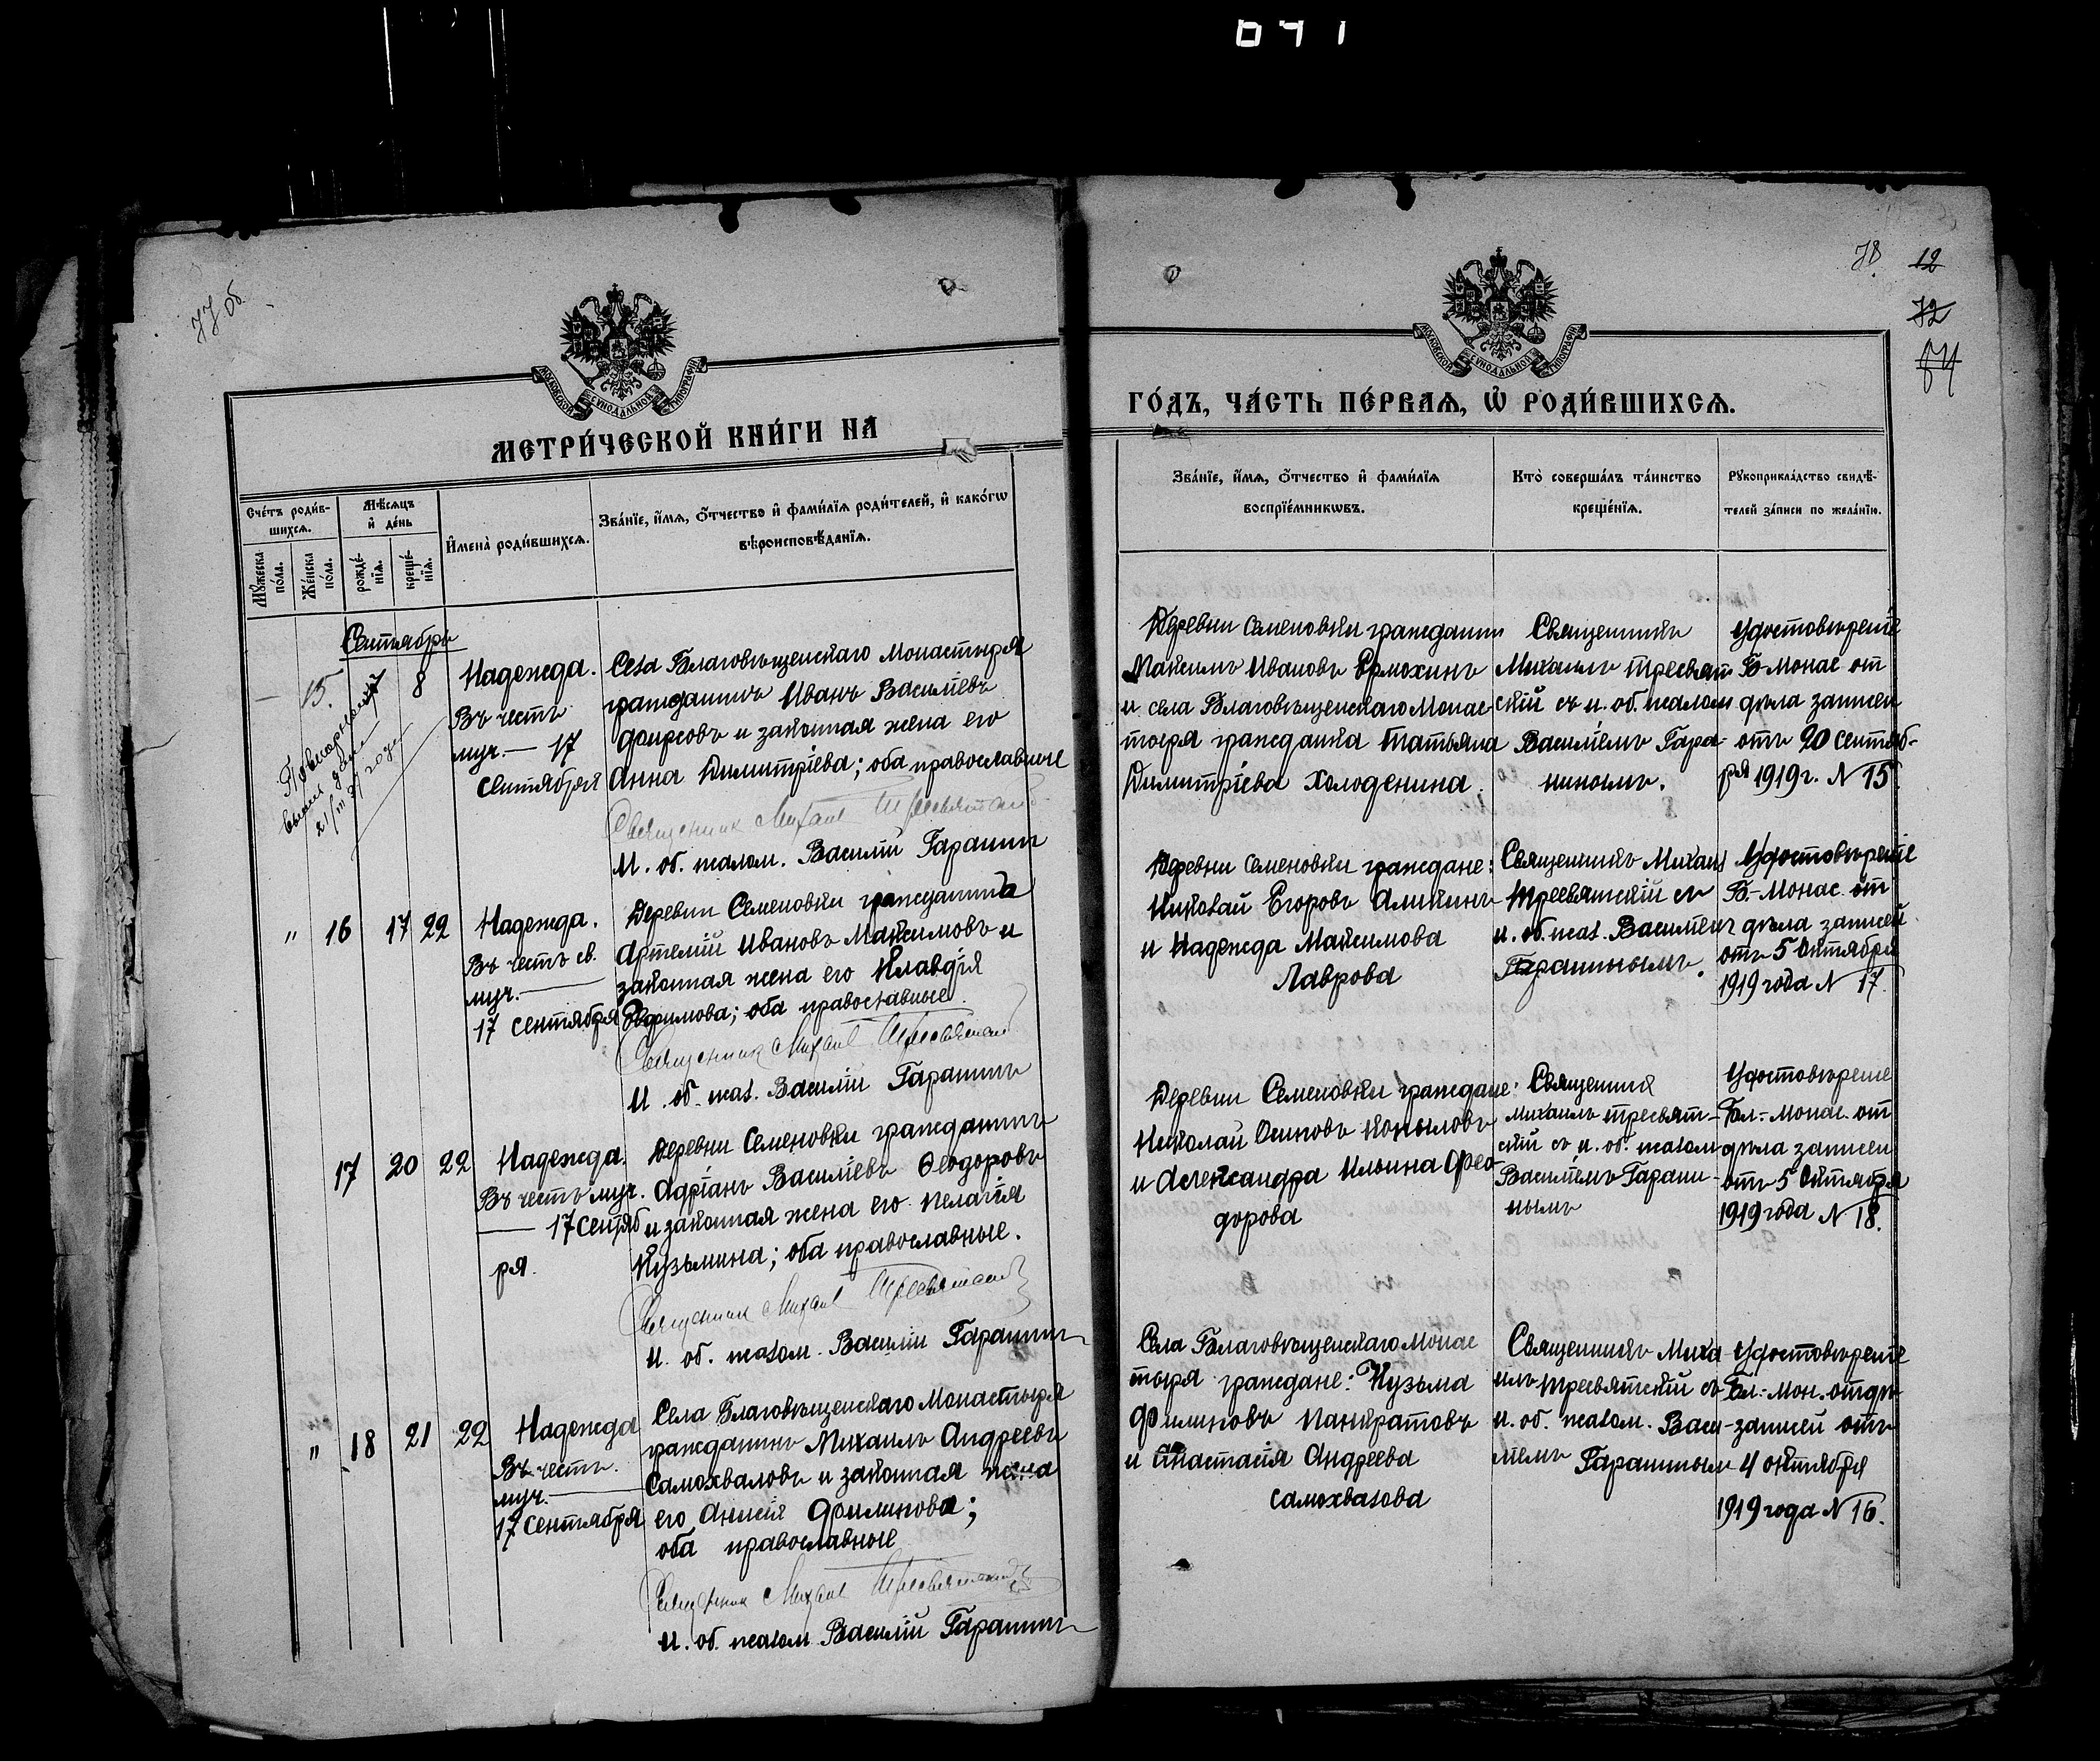 641
77 об
МОСКОВСКОЙ СУНОДАЛЬНОЙ ТИПОГРАФІИ
МЕТРИ́ЧЕСКОЙ КНИ́ГИ НА
Сче́тъ роди́в-
шихсѧ.
Мѣ́сѧцъ
и҆ де́нь
Мꙋ́жеска
по́ла.
Же́нска
по́ла.
рожде́-
нїѧ.
креще́-
нїѧ.
И҆мена̀ роди́вшихсѧ.
Зва́нїе, и҆́мѧ, ѻ҆́тчество и҆ фами́лїѧ роди́телей, и҆ како́гѡ
вѣроисповѣ́данїѧ.
Сентябрь
— 15. 7 8
Надежда.
Въ честь
муч. — 17
сентября
Села Благовѣщенскаго Монастыря
гражданинъ Иванъ Василіевъ
и законная жена его
Анна Димитріева; оба православные
Священник Михаил Тресвятский
И. об. псалом. Василій Гаранинъ
21/III 37 года
" 16 17 22
Надежда.
Въ честь св.
муч. —
17 сентября
Деревни Семеновки гражданинъ
Артемій Ивановъ Максимовъ и
законная жена его Клавдія
Евфимова; оба православные.
Священник Михаил Тресвятский
И. об. псал. Василій Гаранинъ
17 20 22
Надежда.
Въ честь муч.
— 17 сентяб
ря.
Деревни Семеновки гражданинъ
Адріанъ Василіевъ Ѳеодоровъ
и законная жена его Пелагія
Кузьмина; оба православные.
Священник Михаил Тресвятский
И. об. псалом. Василій Гаранинъ
" 18 21 22
Надежда
Въ честь.
муч. —
17 сентября
Села Благовѣщенскаго Монастыря
гражданинъ Михаилъ Андреевъ
Самохваловъ и законная жена
его Анисія Филипова;
оба православные
Священник Михаил Тресвятский
И. об. псалом. Василій Гаранинъ
78. 12
72
74
МОСКОВСКОЙ СУНОДАЛЬНОЙ ТИПОГРАФІИ
ГО́ДЪ, ЧА́СТЬ ПЕ́РВАѦ, Ѡ҆ РОДИ́ВШИХСѦ.
Зва́нїе, и҆́мѧ, ѻ҆́тчество и҆ фами́лїѧ
воспрїе́мникѡвъ.
Кто̀ соверша́лъ та́инство
креще́нїѧ.
Рꙋкоприкла́дство свидѣ́-
телей за́писи по жела́нїю.
Деревни Семеновки гражданин
Максимъ Ивановъ Ермохинъ
и села Благовѣщенскаго Монас-
тыря гражданка Татьяна
Димитріева Холоденина.
Священникъ
Михаилъ Тресвят-
скій съ и. об. псалом
Василіемъ Гара-
нинымъ.
Удостовѣреніе
Б-Монас от
дѣла записей
отъ 20 сентяб-
ря 1919 г. № 15.
Деревни Семеновки граждане:
Николай Егоровъ Аликинъ
и Надежда Максимова
Лаврова
Священникъ Михаил
Тресвятскій съ
и. об. псал. Василіемъ
Гаранинымъ.
Удостовѣреніе
Б.-Монас. от
дѣла записей
отъ 5 Октября
1919 года № 17.
Деревни Семеновки граждане:
Николай Осиповъ Копыловъ
и Александра Ильина Фео-
дорова
Священник
Михаилъ Тресвят-
скій съ и. об. псалом
Василіемъ Гарани-
нымъ
Удостовѣрение
Бл.-Монас. от
дѣла записей
отъ 5 Октября
1919 года № 18.
Села Благовѣщенскаго Монас
тыря граждане: Кузьма
Филиповъ Панкратовъ
и Анастасія Андреева
Самохвалова
Священникъ Миха
илъ Тресвятскій съ
и. об. псалом. Васи-
ліемъ Гаранинымъ
Удостовѣреніе
Бл.-Мон. отдѣ-
записей отъ
4 октября
1919 года № 16.